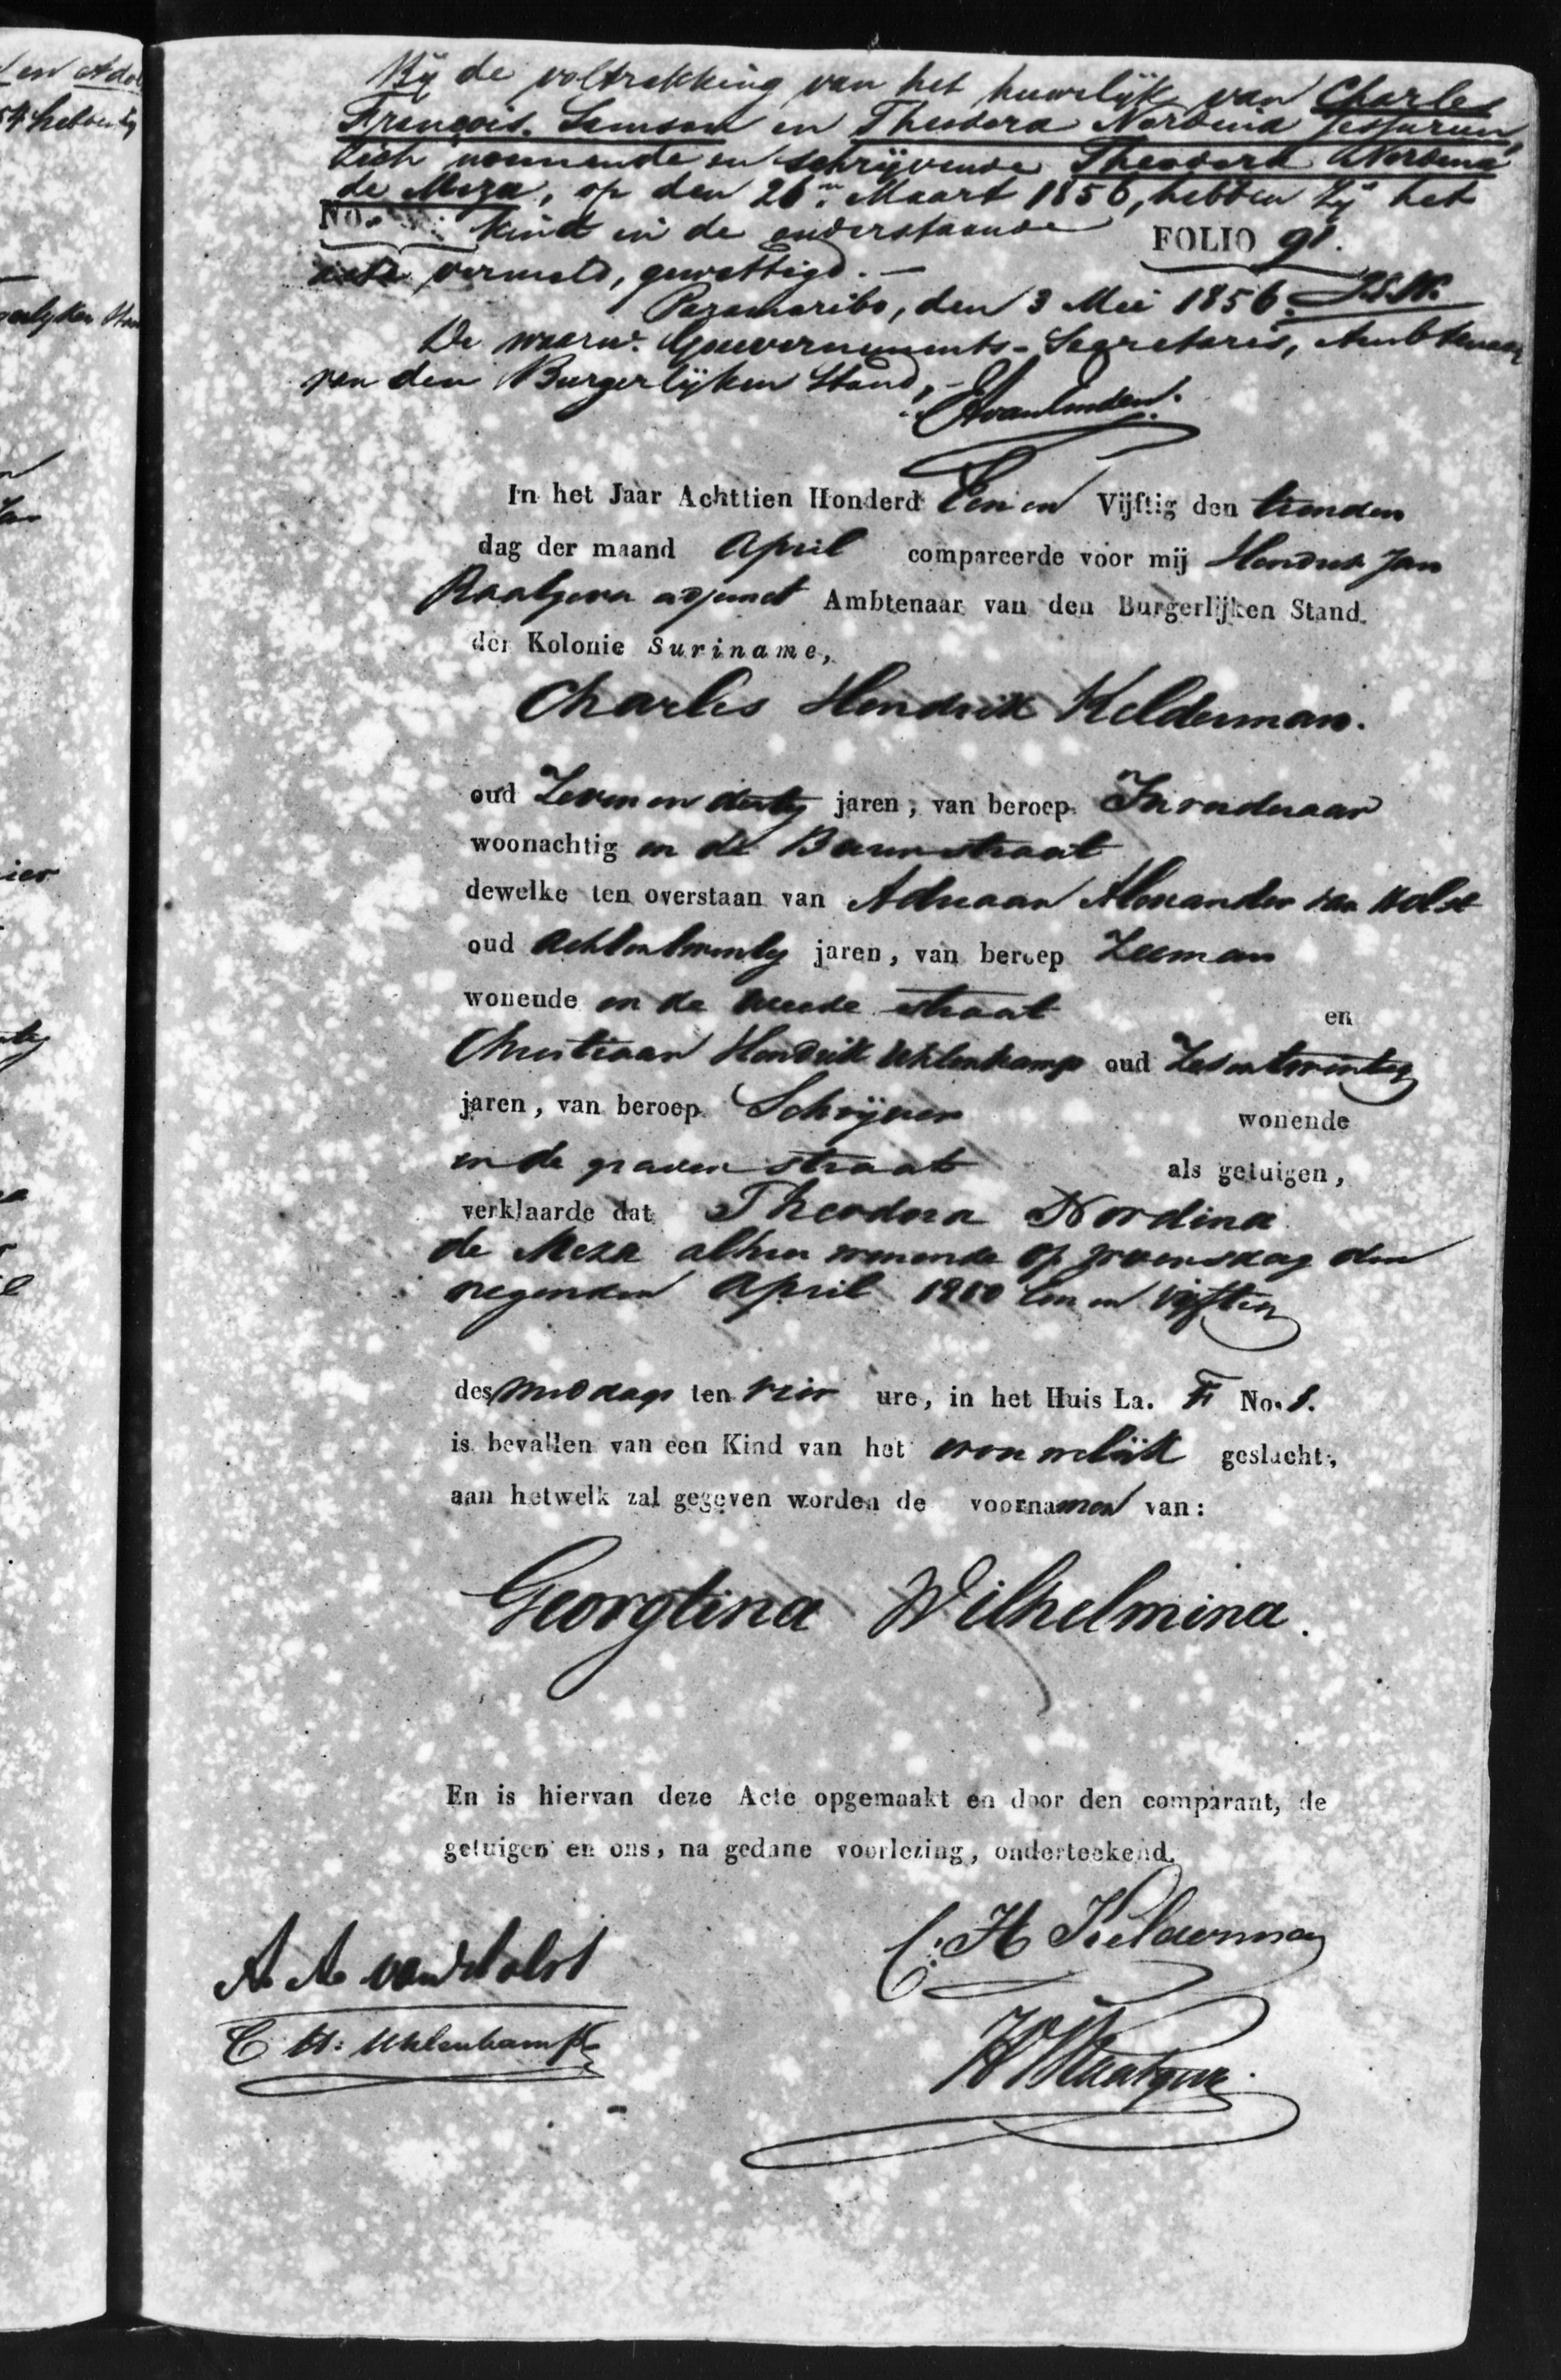 Bij de voltrekking van het huwelijk van Charles
François Samson en Theodora Nordina Jessurun,
zich noemende en schrijvende Theodora Nordina
de Meza, op den 26n. Maart 1856, hebben zij het
No. kind in de onderstaande FOLIO 91.
acte vermeld, gewettigd. —
Paramaribo, den 3 Mei 1856.
De waarn. Gouvernements-Secretaris, Ambtenaar
van den Burgerlijken Stand,
In het Jaar Achttien Honderd Een en Vijftig den tienden
dag der maand April compareerde voor mij Hendrik Jan
Raatgever adjunct Ambtenaar van den Burgerlijken Stand
der Kolonie Suriname,
Charles Hendrik Kelderman.
oud Zeven en dertig jaren, van beroep
woonachtig in de straat
dewelke ten overstaan van Adriaan Alexander van Holst
oud achtentwintig jaren, van beroep Zeeman
wonende in de straat en
Christiaan Hendrik Uhlenkamp oud Zesentwintig
jaren, van beroep Schrijver wonende
in de graven straat als getuigen,
verklaarde dat Theodora Nordina
de Meza alhier wonende op woensdag den
negenden April 1800 een en vijftig
des middags ten vier ure, in het Huis La. F No. 1.
is bevallen van een Kind van het vrouwelijk geslacht,
aan hetwelk zal gegeven worden de voornamen van:
Georgtina Wilhelmina.
En is hiervan deze Acte opgemaakt en door den comparant, de
getuigen en ons, na gedane voorlezing, onderteekend.
C. H Kelderman
A A van Holst
C H: Uhlenkamp
HJRaatgever